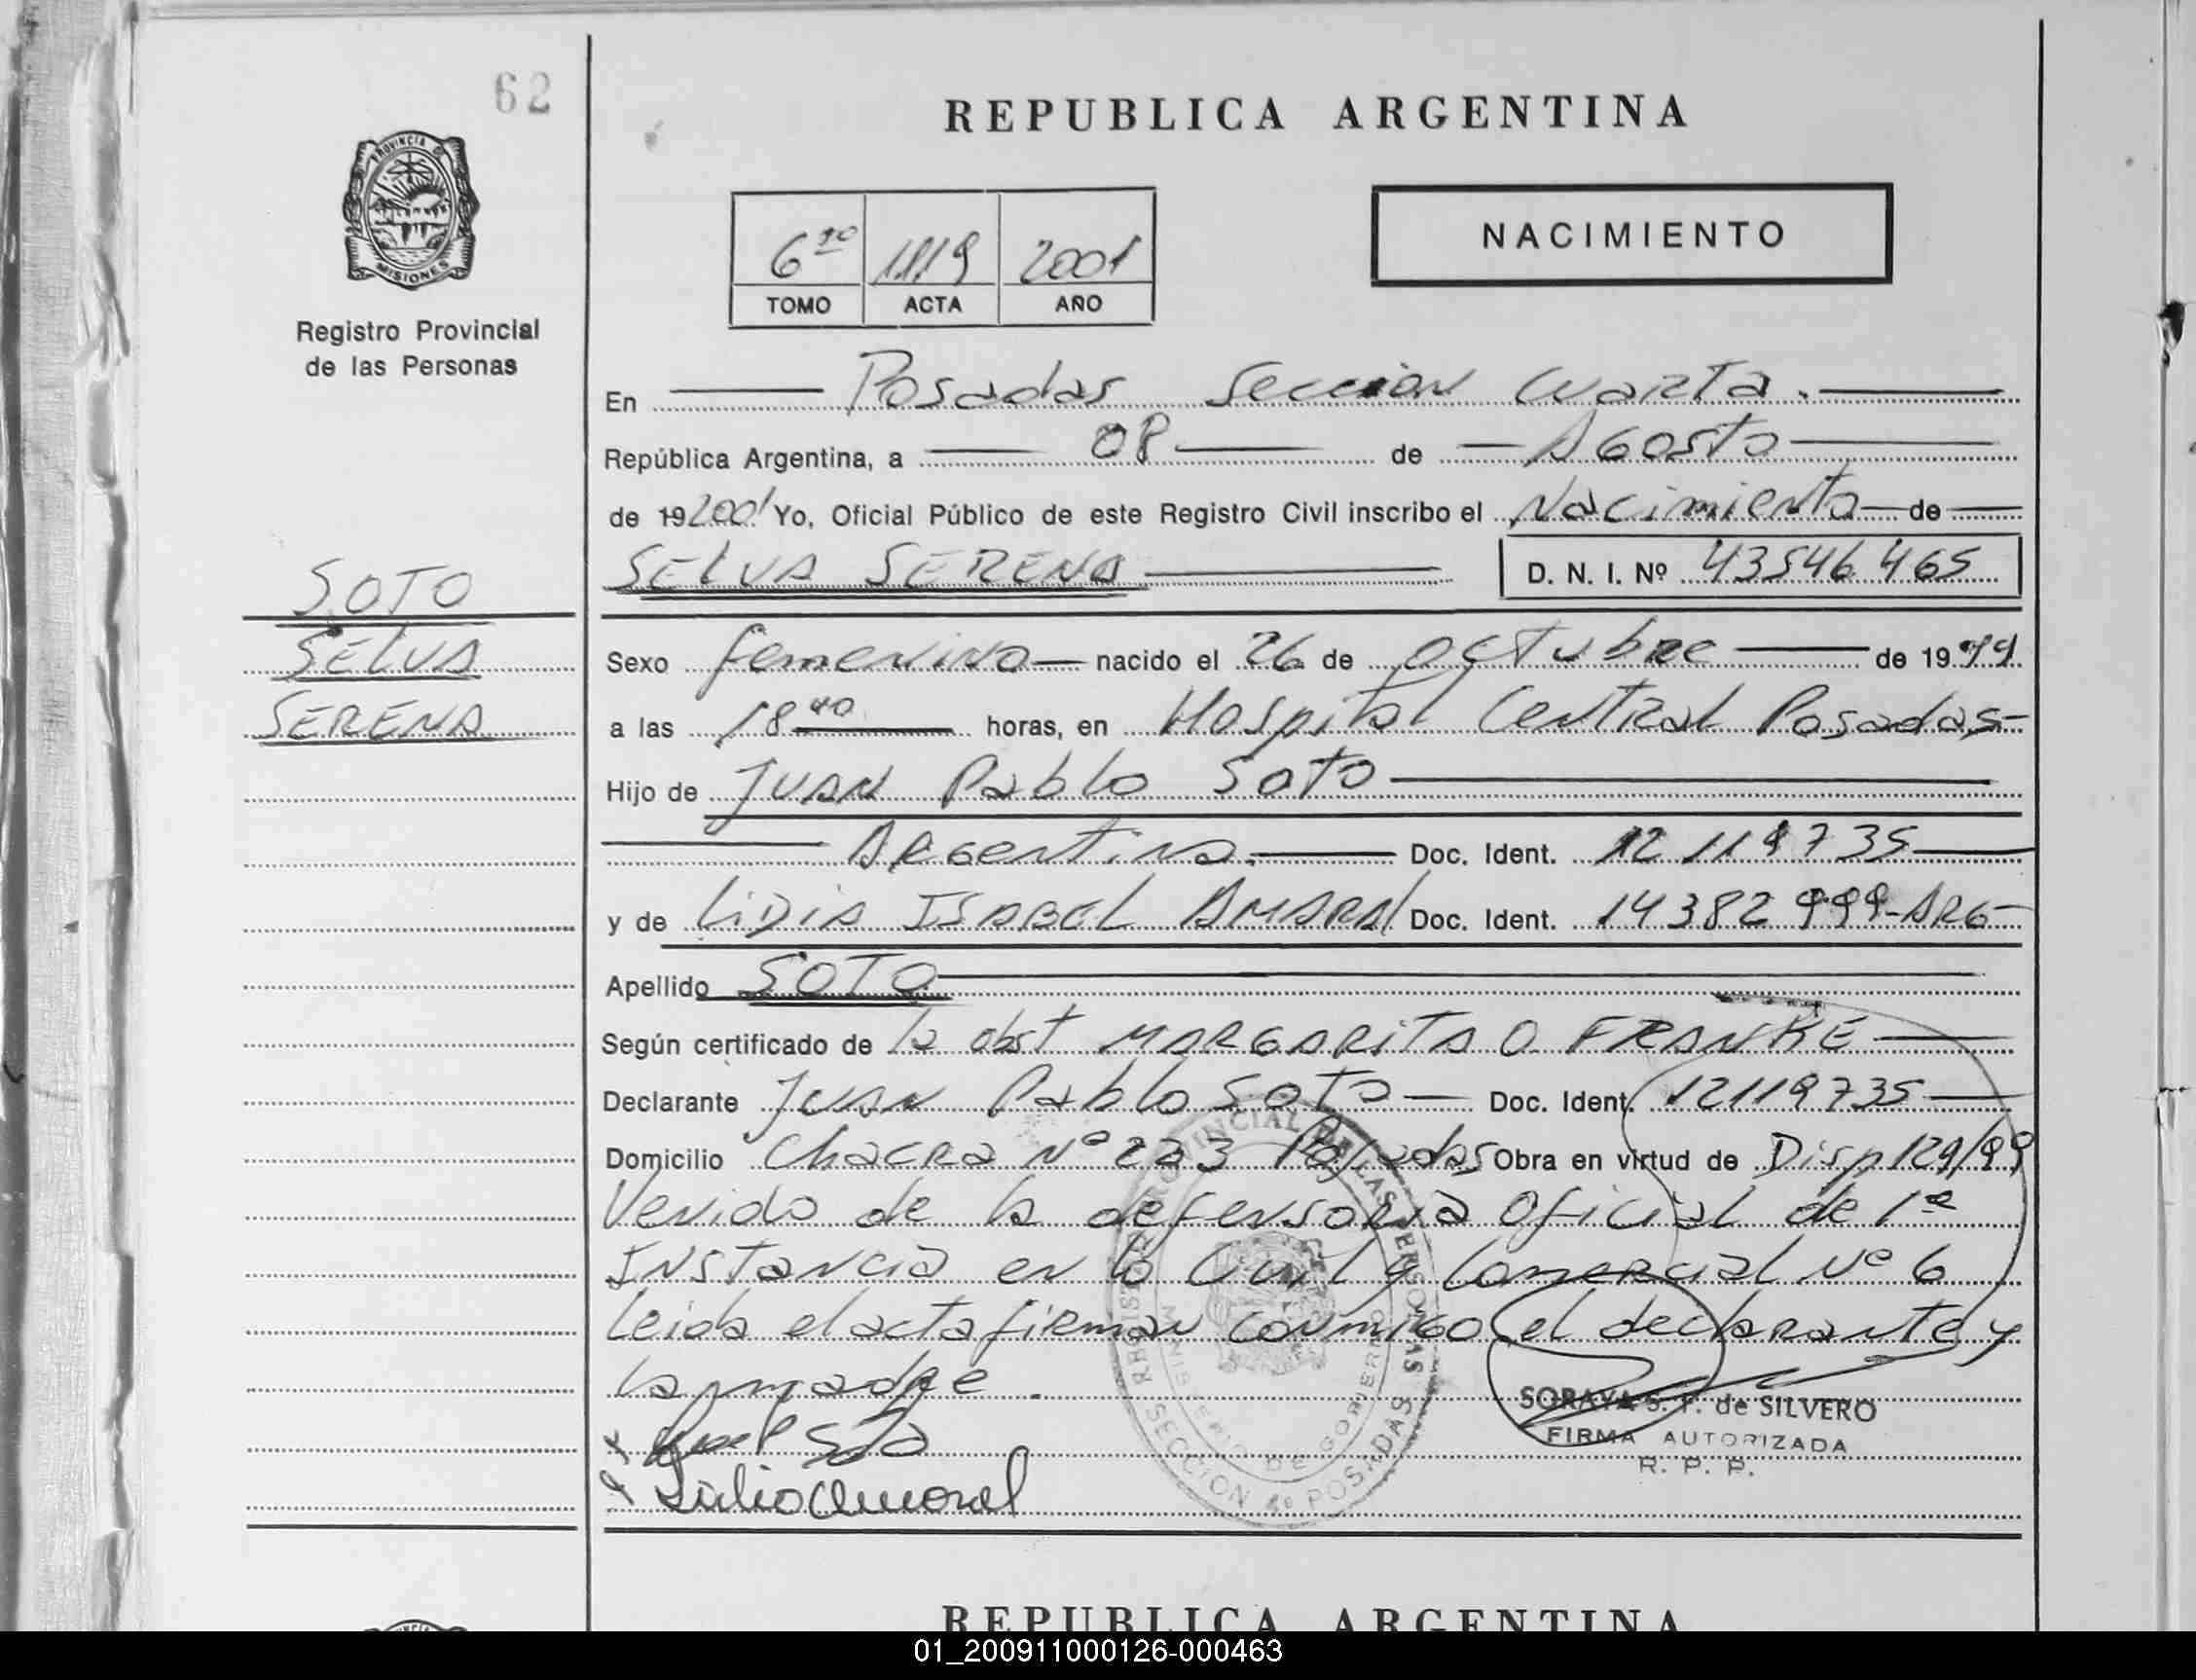 62
REPUBLICA ARGENTINA
PROVINCIA DE
MISIONES
Registro Provincial
de las Personas
6to 1119 2001
TOMO ACTA AÑO
NACIMIENTO
En Posadas Seccion Cuarta.
República Argentina, a 08 de Agosto
de 19 2001 Yo, Oficial Público de este Registro Civil inscribo el Nacimiento de
SELVA SERENA D. N. I. Nº 43546465
SOTO
SELVA
SERENA
Sexo femenino nacido el 26 de octubre de 1999
a las 18 40 horas, en Hospital Central Posadas
Hijo de Juan Pablo Soto
Argentina. Doc. Ident. 12119735
y de LIDIA ISABEL AMARAL Doc. Ident. 14382999-ARG
Apellido SOTO
Según certificado de la obst MARGARITA O FRANKE
Declarante Juan Pablo Soto Doc. Ident. 12119735
Domicilio Chacra Nº 223 Posadas Obra en virtud de Disp 129/99
Venido de la defensoria Oficial de 1ª
Instancia en lo Civil y Comercial Nº 6
Leida el acta firman conmigo el declarante y
la madre.
SORAYA S. F. de SILVERO
FIRMA AUTORIZADA
R. P. P.
REGISTRO PROVINCIAL DE LAS PERSONAS
MINISTERIO DE GOBIERNO
SECCION 4º POSADAS
REPUBLICA ARGENTINA
01_200911000126-000463